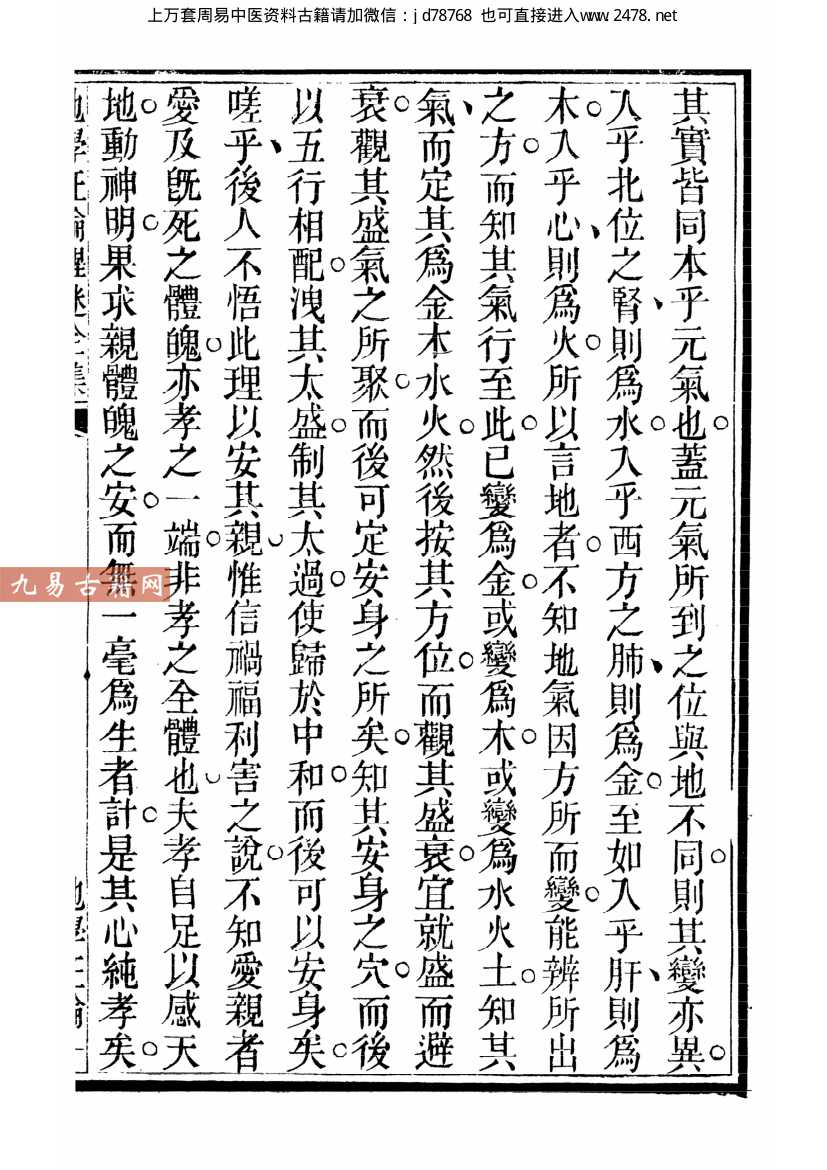 上万套周易中医资料古籍请加微信：jd78768 也可直接进入www.2478.net
其實皆同本乎元氣也。蓋元氣所到之位與地不同。則其變亦異。
入乎北位之腎、則爲水。入乎西方之肺、則爲金。至如入乎肝、則爲
木。入乎心、則爲火。所以言地者。不知地氣因方所而變。能辨所出
之方。而知其氣行至此。已變爲金。或變爲木。或變爲水火土。知其
氣、而定其爲金木水火。然後按其方位。而觀其盛衰。宜就盛而避
衰。觀其盛氣之所聚。而後可定安身之所矣。知其安身之穴。而後
以五行相配。洩其太盛。制其太過。使歸於中和。而後可以安身矣。
嗟乎、後人不悟此理以安其親、惟信禍福利害之說。不知愛親者
愛及旣死之體魄。亦孝之一端。非孝之全體也、夫孝自足以感天
地。動神明。果求親體魄之安。而無一毫爲生者計。是其心純孝矣。
九易古籍网